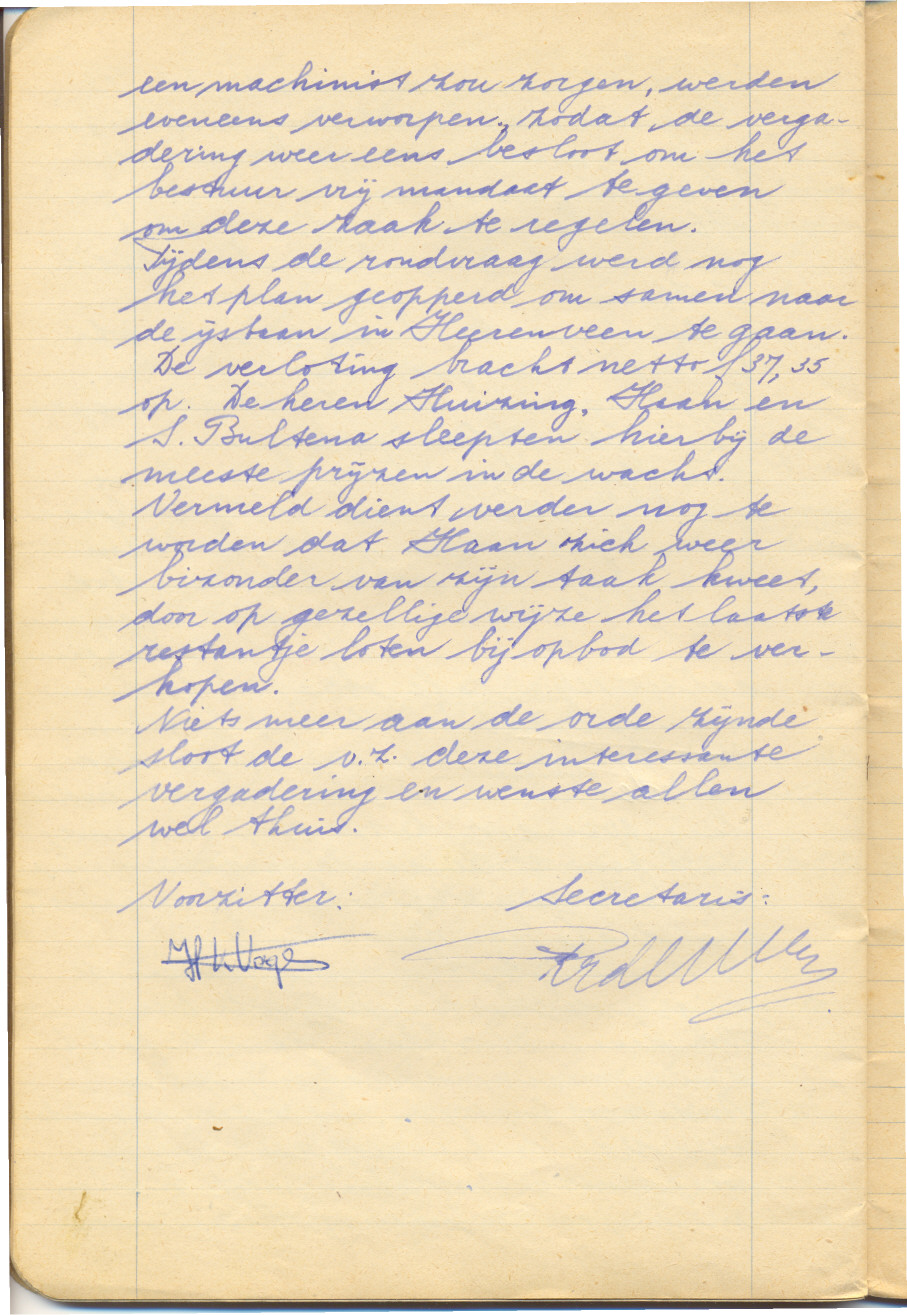 een machinist zou zorgen, werden
eveneens verworpen, zodat de verga-
dering weer eens besloot om het
bestuur vrij mandaat te geven
om deze zaak te regelen.
Tijdens de rondvraag werd nog
het plan geopperd om samen naar
de ijsbaan in Heerenveen te gaan.
De verloting bracht netto f 37,35
op. De heren Huizing, Haan en
S. Bultena sleepten hierbij de
meeste prijzen in de wacht.
Vermeld dient verder nog te
worden dat Haan zich weer
bizonder van zijn taak kweet,
door op gezellige wijze het laatste
restantje loten bij opbod te ver-
kopen.
Niets meer aan de orde zijnde
sloot de v.z. deze interessante
vergadering en wenste allen
wel thuis.
Voorzitter: Secretaris: